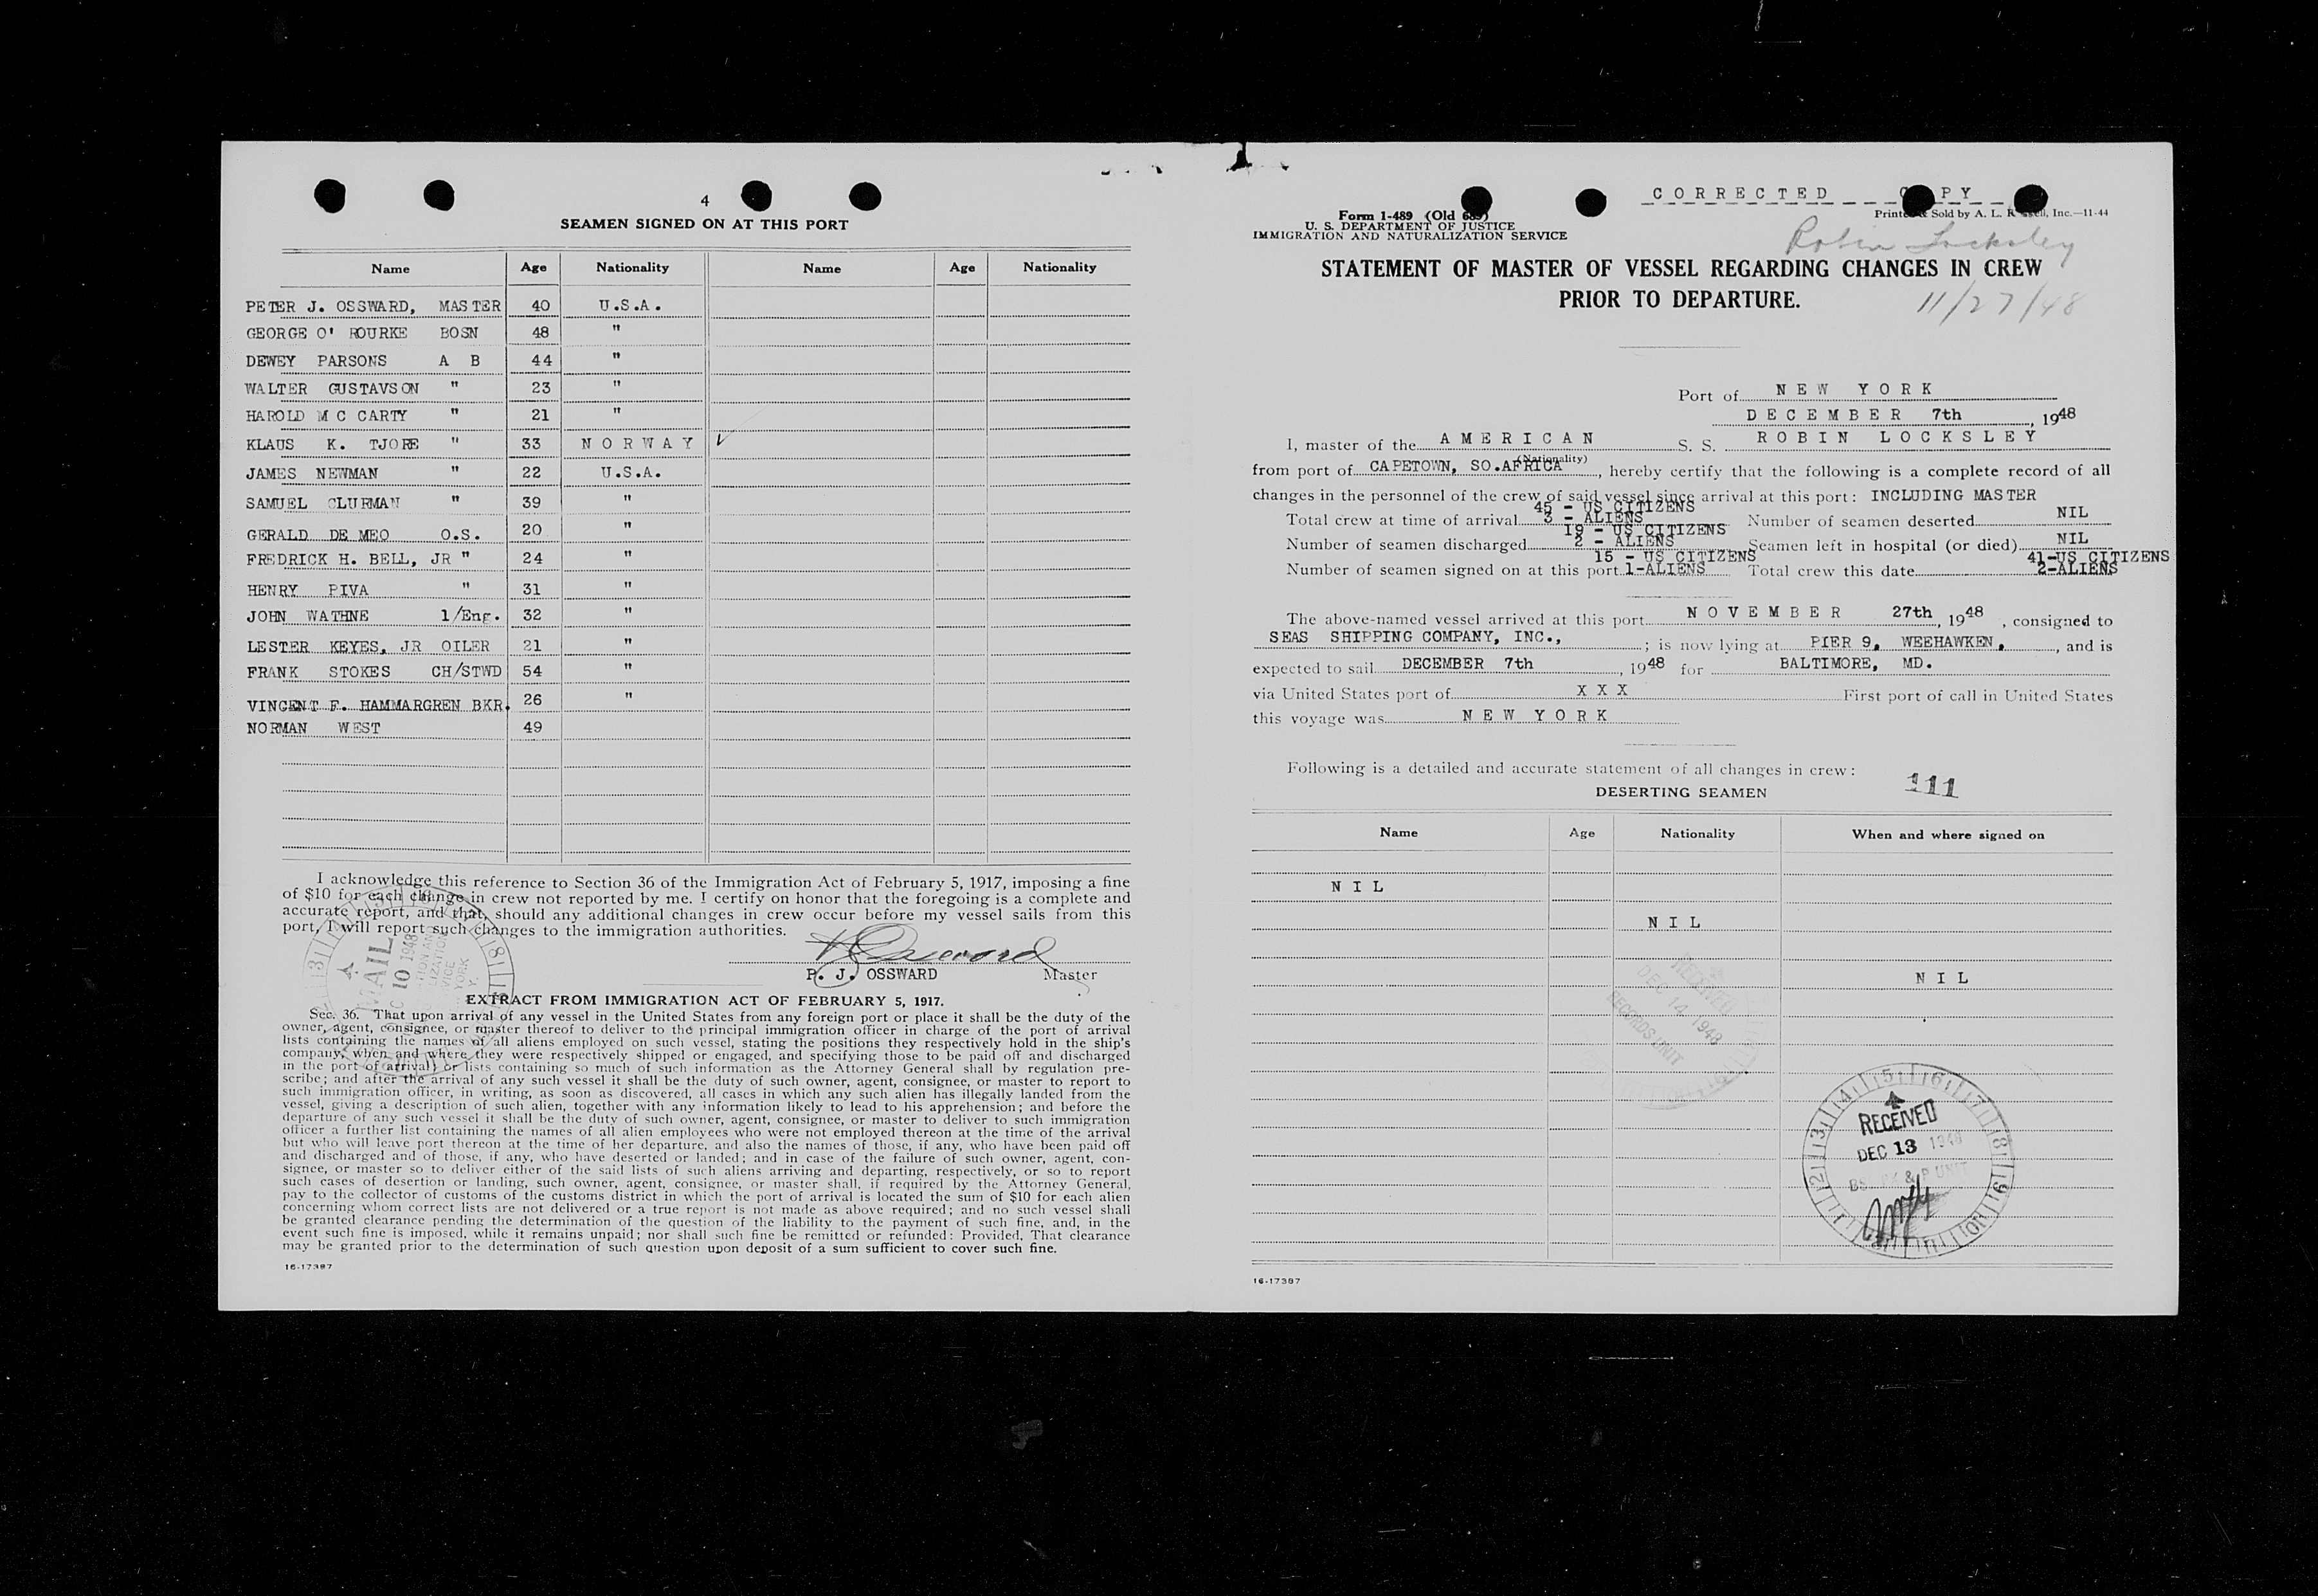 4
SEAMEN SIGNED ON AT THIS PORT
Name Age Nationality Name Age Nationality
PETER J. OSSWARD, MASTER 40 U.S.A.
GEORGE O' ROURKE BOSN 48 "
DEWEY PARSONS A B 44 "
WALTER GUSTAVSON " 23 "
HAROLD M C CARTY " 21 "
KLAUS K. TJORE " 33 N O R W A Y ✓
JAMES NEWMAN " 22 U.S.A.
SAMUEL CLURMAN " 39 "
GERALD DE MEO O.S. 20 "
FREDRICK H. BELL, JR " 24 "
HENRY PIVA " 31 "
JOHN WATHNE 1/Eng. 32 "
LESTER KEYES, JR OILER 21 "
FRANK STOKES CH/STWD 54 "
VINCENT F. HAMMARGREN BKR. 26 "
NORMAN WEST 49
I acknowledge this reference to Section 36 of the Immigration Act of February 5, 1917, imposing a fine
of $10 for each change in crew not reported by me. I certify on honor that the foregoing is a complete and
accurate report, and that, should any additional changes in crew occur before my vessel sails from this
port, I will report such changes to the immigration authorities.
P. J. OSSWARD Master
MAIL
10 1948
EXTRACT FROM IMMIGRATION ACT OF FEBRUARY 5, 1917.
Sec. 36. That upon arrival of any vessel in the United States from any foreign port or place it shall be the duty of the
owner, agent, consignee, or master thereof to deliver to the principal immigration officer in charge of the port of arrival
lists containing the names of all aliens employed on such vessel, stating the positions they respectively hold in the ship's
company, when and where they were respectively shipped or engaged, and specifying those to be paid off and discharged
in the port of arrival; or lists containing so much of such information as the Attorney General shall by regulation pre-
scribe; and after the arrival of any such vessel it shall be the duty of such owner, agent, consignee, or master to report to
such immigration officer, in writing, as soon as discovered, all cases in which any such alien has illegally landed from the
vessel, giving a description of such alien, together with any information likely to lead to his apprehension; and before the
departure of any such vessel it shall be the duty of such owner, agent, consignee, or master to deliver to such immigration
officer a further list containing the names of all alien employees who were not employed thereon at the time of the arrival
but who will leave port thereon at the time of her departure, and also the names of those, if any, who have been paid off
and discharged and of those, if any, who have deserted or landed; and in case of the failure of such owner, agent, con-
signee, or master so to deliver either of the said lists of such aliens arriving and departing, respectively, or so to report
such cases of desertion or landing, such owner, agent, consignee, or master shall, if required by the Attorney General,
pay to the collector of customs of the customs district in which the port of arrival is located the sum of $10 for each alien
concerning whom correct lists are not delivered or a true report is not made as above required; and no such vessel shall
be granted clearance pending the determination of the question of the liability to the payment of such fine, and, in the
event such fine is imposed, while it remains unpaid; nor shall such fine be remitted or refunded: Provided, That clearance
may be granted prior to the determination of such question upon deposit of a sum sufficient to cover such fine.
16-17387
C O R R E C T E D C O P Y
Form 1-489 (Old 689)
U. S. DEPARTMENT OF JUSTICE
IMMIGRATION AND NATURALIZATION SERVICE
Printed & Sold by A. L. Russell, Inc.—11-44
Robin Locksley
STATEMENT OF MASTER OF VESSEL REGARDING CHANGES IN CREW
PRIOR TO DEPARTURE.
11/27/48
Port of N E W Y O R K
D E C E M B E R 7th, 1948
I, master of the A M E R I C A N S. S. R O B I N L O C K S L E Y
(Nationality)
from port of CAPETOWN, SO.AFRICA, hereby certify that the following is a complete record of all
changes in the personnel of the crew of said vessel since arrival at this port: INCLUDING MASTER
45 - US CITIZENS
Total crew at time of arrival 3 - ALIENS Number of seamen deserted NIL
19 - US CITIZENS
Number of seamen discharged 2 - ALIENS Seamen left in hospital (or died) NIL
15 - US CITIZENS 41-US CITIZENS
Number of seamen signed on at this port 1-ALIENS Total crew this date 2-ALIENS
The above-named vessel arrived at this port N O V E M B E R 27th, 1948, consigned to
SEAS SHIPPING COMPANY, INC., ; is now lying at PIER 9, WEEHAWKEN, , and is
expected to sail DECEMBER 7th, 1948 for BALTIMORE, MD.
via United States port of X X X First port of call in United States
this voyage was N E W Y O R K
Following is a detailed and accurate statement of all changes in crew:
DESERTING SEAMEN 111
Name Age Nationality When and where signed on
N I L
N I L
N I L
RECEIVED
DEC 14 1948
RECORDS UNIT
RECEIVED
DEC 13 1948
16-17387